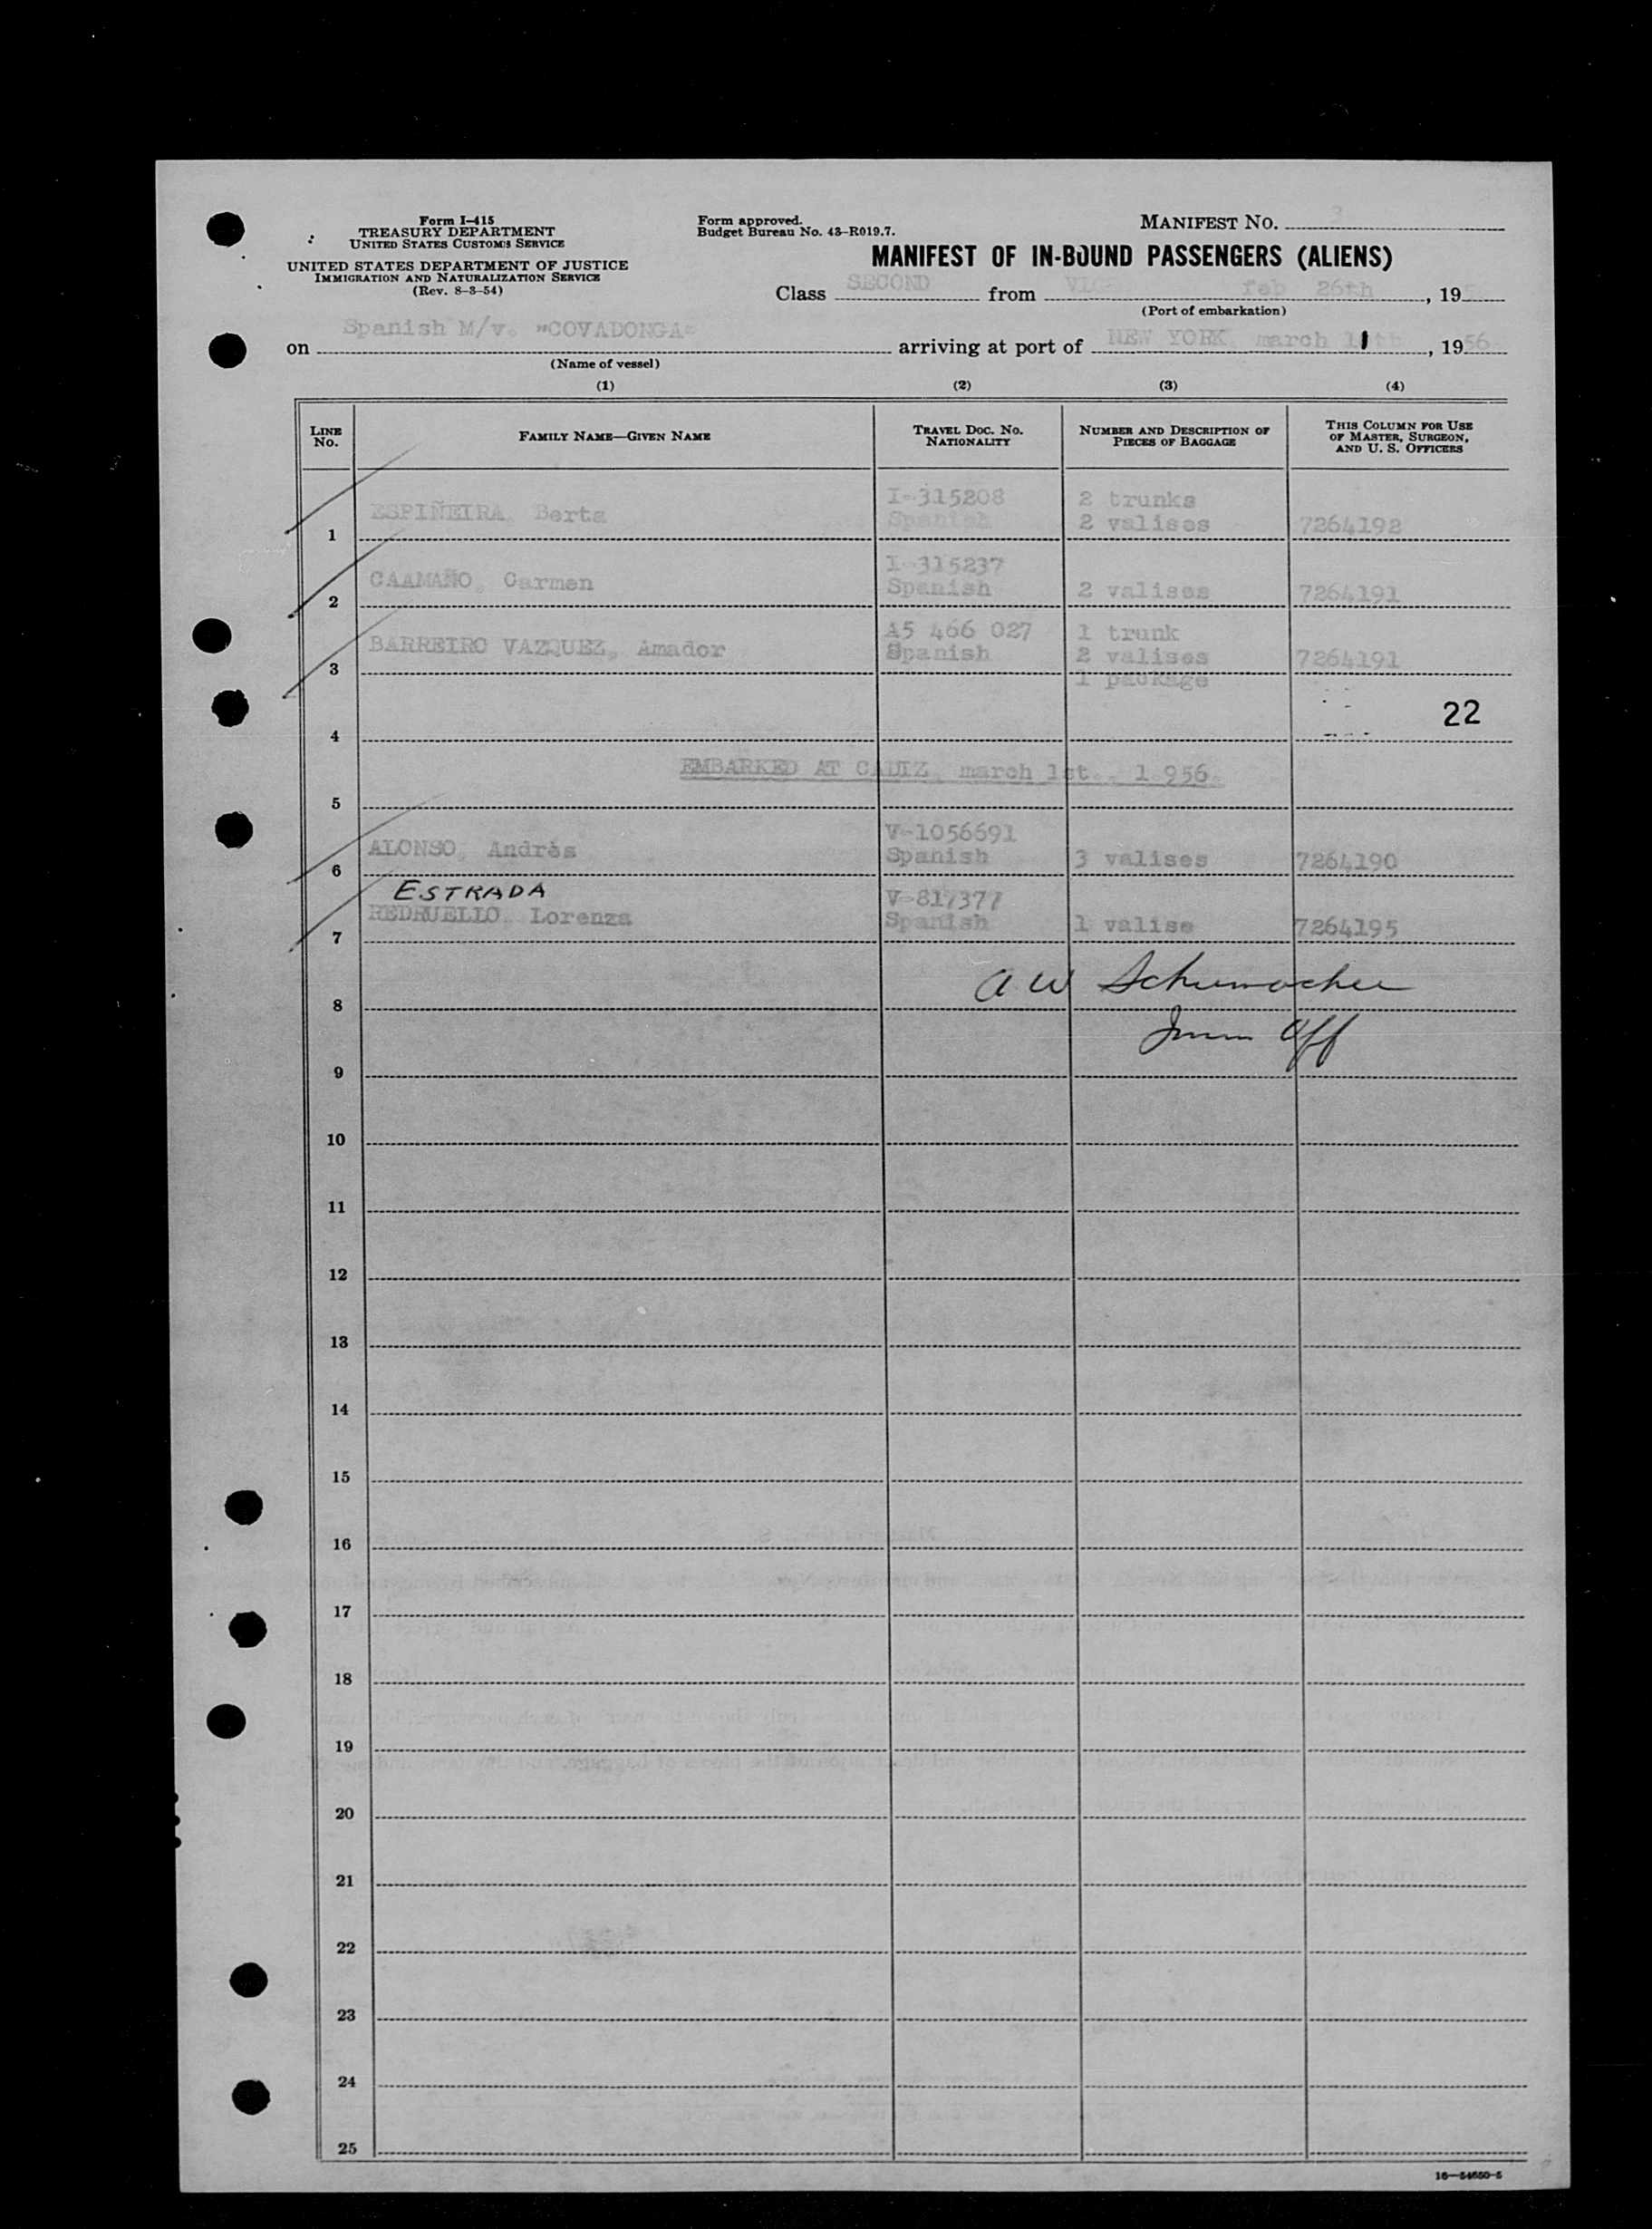 Form I-415
TREASURY DEPARTMENT
UNITED STATES CUSTOMS SERVICE
UNITED STATES DEPARTMENT OF JUSTICE
IMMIGRATION AND NATURALIZATION SERVICE
(Rev. 8-3-54)
Form approved.
Budget Bureau No. 43-R019.7.
MANIFEST NO. 3
MANIFEST OF IN-BOUND PASSENGERS (ALIENS)
Class SECOND from feb 26th, 19
(Port of embarkation)
on Spanish M/v. "COVADONGA" arriving at port of NEW YORK, march 11th, 1956
(Name of vessel)
(1) (2) (3) (4)
LINE No. FAMILY NAME—GIVEN NAME TRAVEL DOC. NO. NATIONALITY NUMBER AND DESCRIPTION OF PIECES OF BAGGAGE THIS COLUMN FOR USE OF MASTER, SURGEON, AND U. S. OFFICERS
I-315208 2 trunks
1 ESPIÑEIRA, Berta Spanish 2 valises 7264192
I-315237
2 CAAMAÑO, Carmen Spanish 2 valises 7264191
A5 466 027 1 trunk
3 BARREIRO VAZQUEZ, Amador Spanish 2 valises 7264191
1 package
22
4
EMBARKED AT CADIZ, march 1st.. 1.956.
5
V-1056691
6 ALONSO, Andrés Spanish 3 valises 7264190
ESTRADA V-817377
7 REDRUELLO, Lorenza Spanish 1 valise 7264195
A W Schumacher
8
Imm Off
9
10
11
12
13
14
15
16
17
18
19
20
21
22
23
24
25
16—54650-5